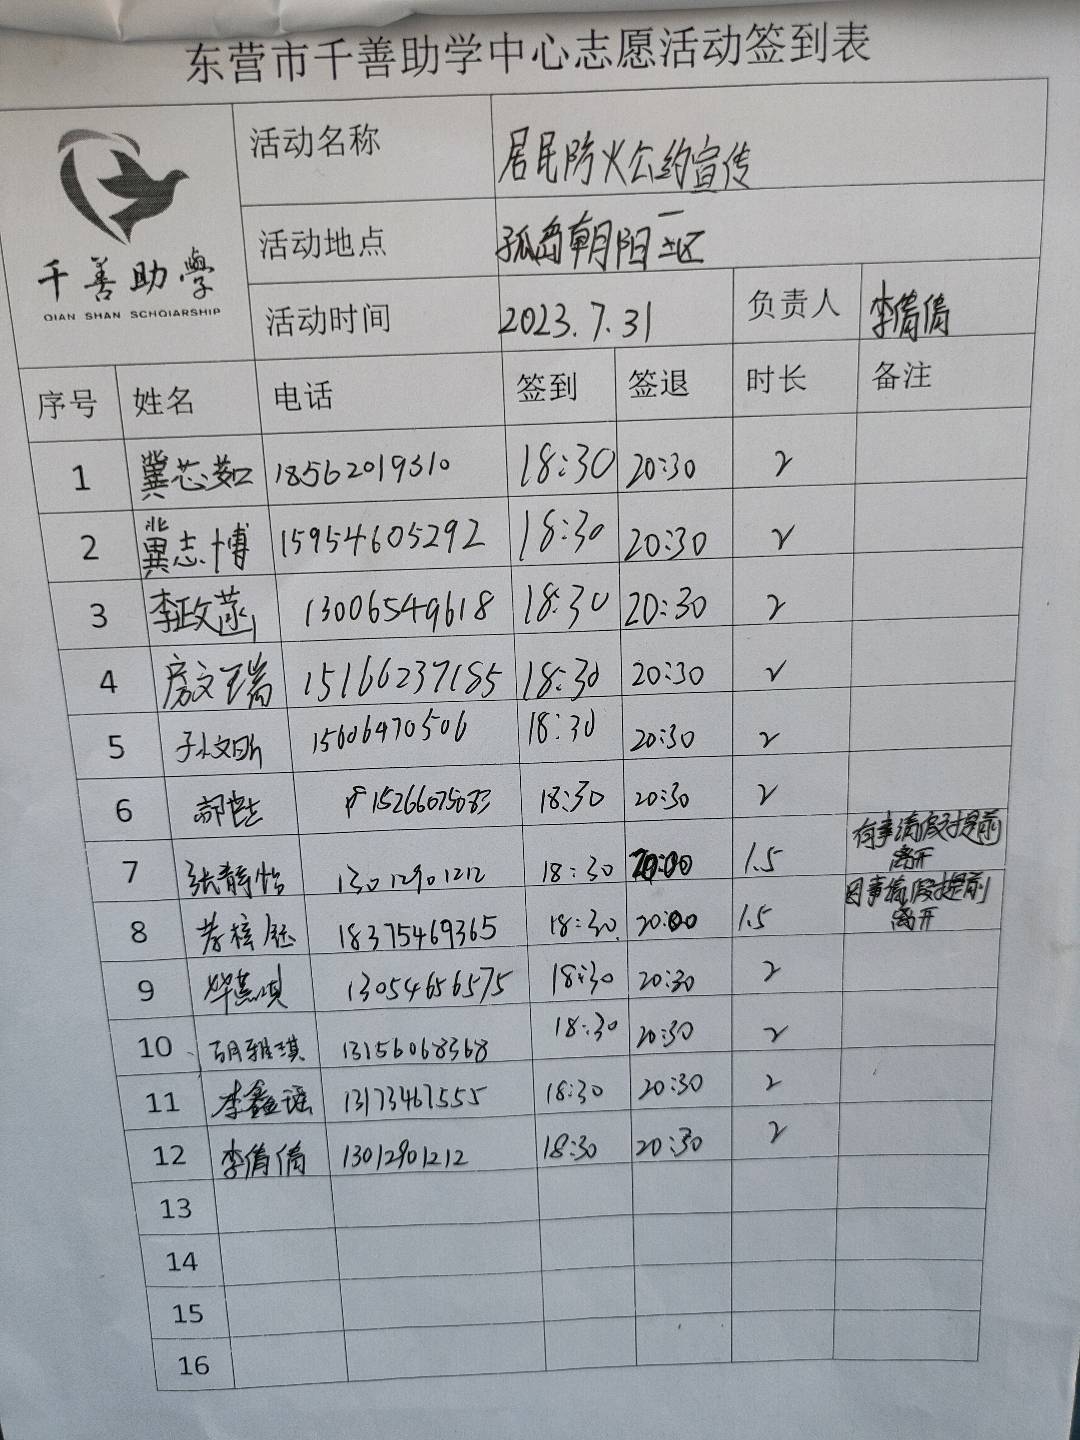 东营市千善助学中心志愿活动签到表
千善助學
QIAN SHAN SCHOlARSHIP
活动名称 居民防火公约宣传
活动地点 孤岛朝阳一区
活动时间 2023.7.31 负责人 李倩倩
序号 姓名 电话 签到 签退 时长 备注
1 冀芯茹 18562019310 18:30 20:30 2
2 冀志博 15954605292 18:30 20:30 2
3 李政菡 13006549618 18:30 20:30 2
4 房文瑞 15166237185 18:30 20:30 2
5 孙文昕 15606470506 18:30 20:30 2
6 15266075083 18:30 20:30 2
7 张静怡 13012901212 18:30 20:00 1.5 有事请假提前
离开
8 18375469365 18:30 20:00 1.5 因事请假提前
离开
9 13054656575 18:30 20:30 2
10 胡雅琪 13156068368 18:30 20:30 2
11 李鑫瑶 13173467555 18:30 20:30 2
12 李倩倩 13012901212 18:30 20:30 2
13
14
15
16